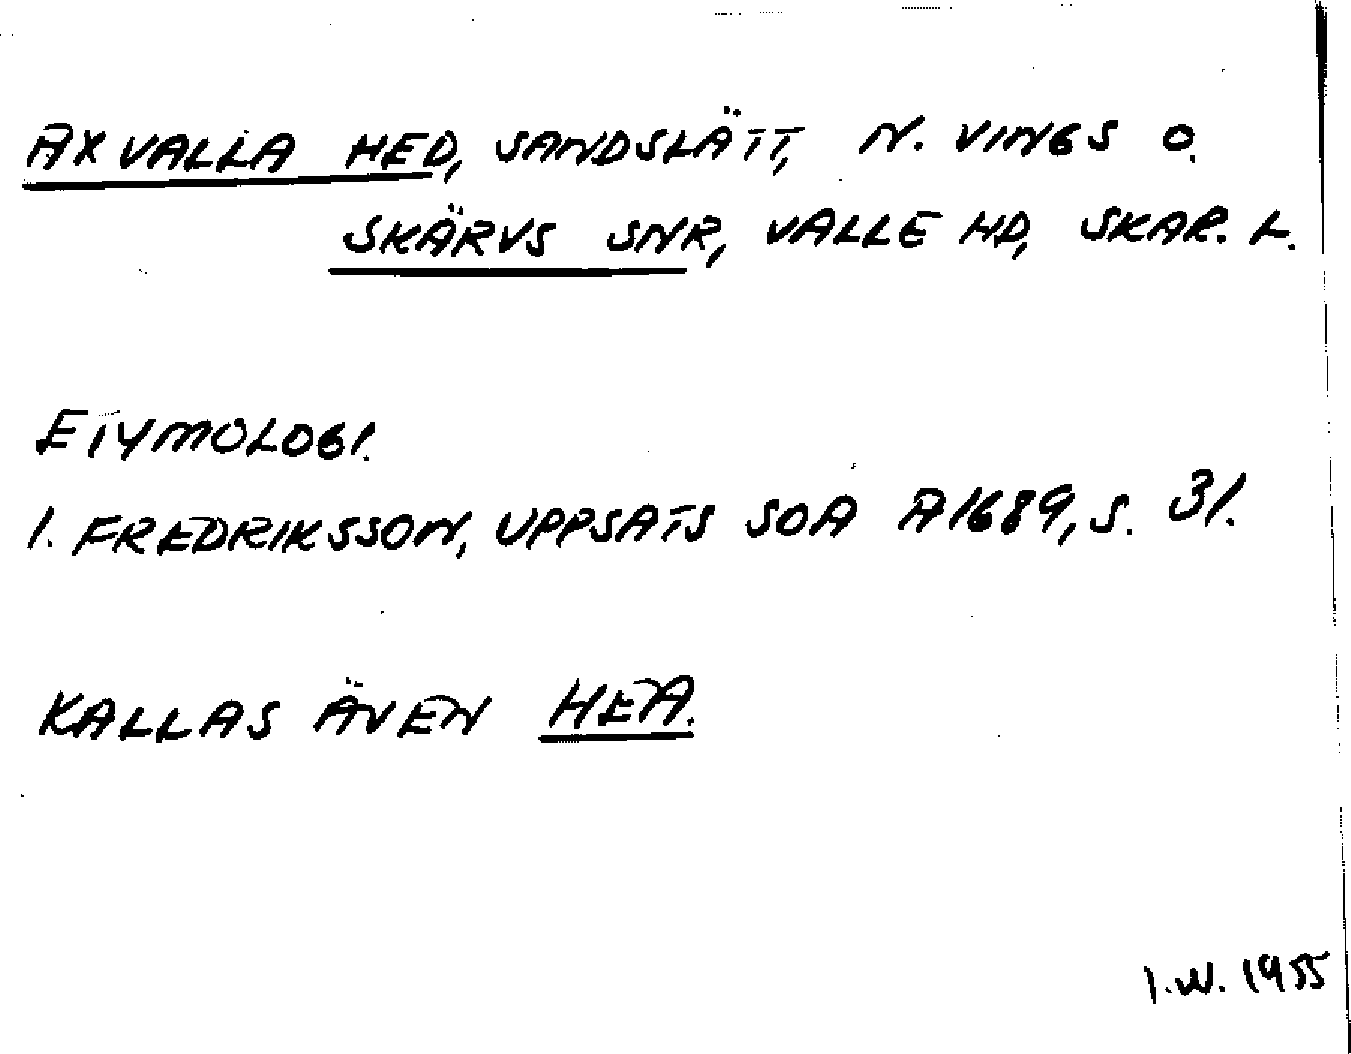 AXVALLA HED, SANDSLÄTT, N. VINGS O.
SKÄRVS SNR, VALLE HD, SKAR. L.
ETYMOLOGI.
I. FREDRIKSSON, UPPSATS SOA A1689, S. 31.
KALLAS ÄVEN HEA.
I.W. 1955